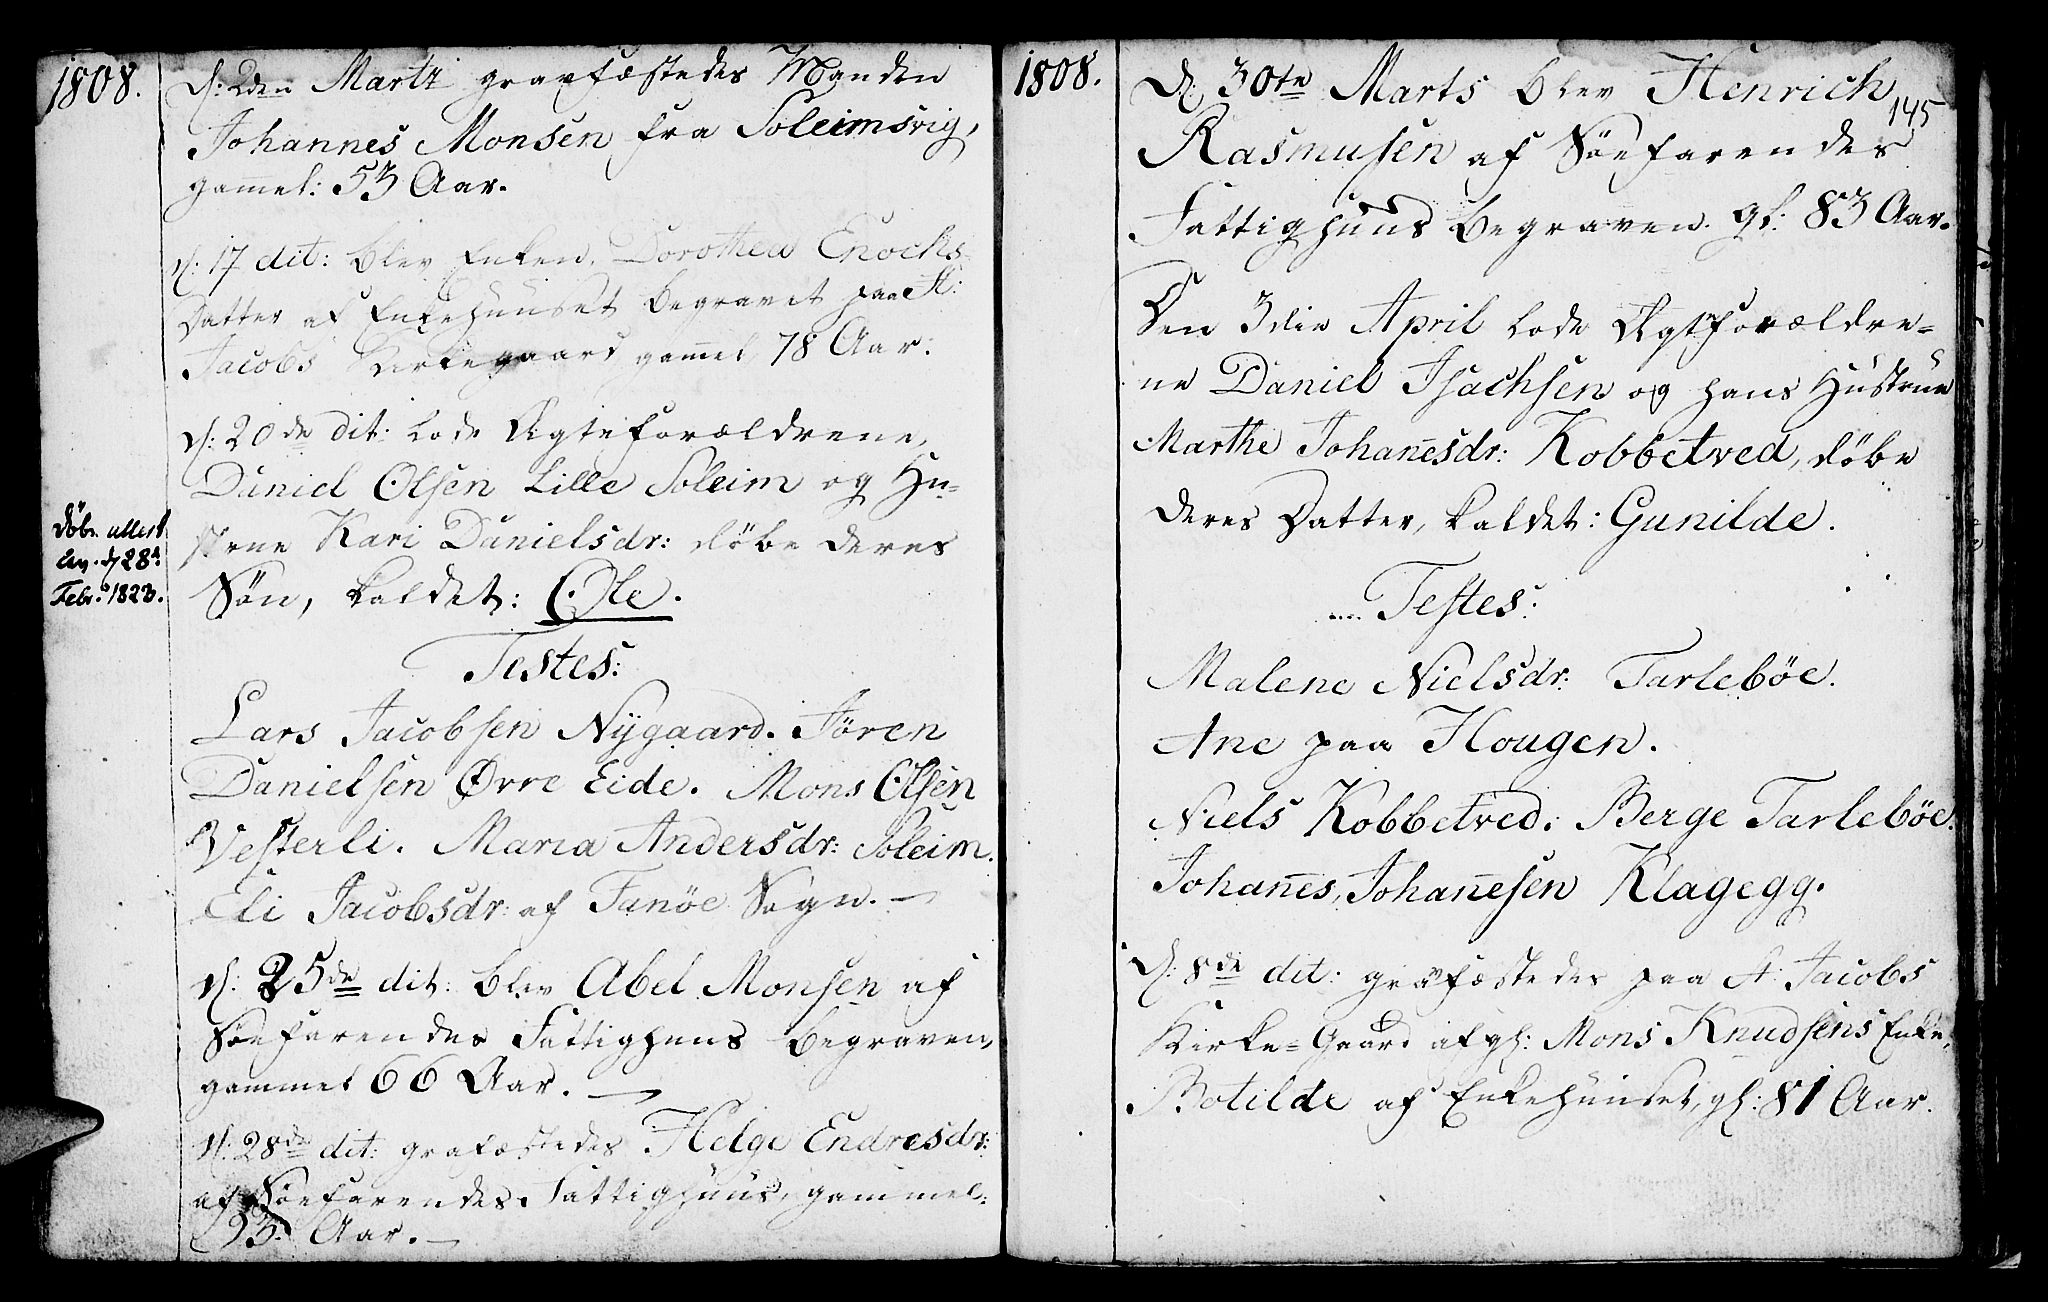 1808.
d: 2den Martz gravfæstedes Manden
Johannes Monsen fra Soleimsvig,
gam̅el: 53 Aar.
d: 17 dit: blev Enken, Dorothea Enochs
Datter af Enkehuuset begravet paa St:
Jacobs Kirkegaard gam̅el 78 Aar.
d: 20de dit: lode Ægteforældrene,
Daniel Olsen Lille Soleim og Hu-
strue Kari Danielsdr: døbe deres
Søn, kaldet: Ole.
Døbe attest
lev. d 28d
Febr. 1823.
Testes:
Lars Jacobsen Nÿgaard. Jören
Danielsen Øvre Eide. Mons Olsen
Vesterli. Maria Andersdr: Soleim.
Eli Jacobsdr: af Fanöe Sogn. —
d: 25de dit: blev Abel Monsen af
Söefarendes Fattighuus begraven,
gammel 66 Aar. —
d: 28de dit: grafæstedes Helge Endresdr:
af Söefarendes Fattighuus, gammel:
93. Aar. —
1808.
145
D: 30te Marts blev Henrich
Rasmusen af Söefarendes
Fattighuus begraven. gl: 83 Aar.
Den 3die April lode Ægteforældre-
ne Daniel Isachsen og hans Hustrue
Marthe Johan̅esdr: Kobbetved, döbe
deres Datter, kaldet: Gunilde.
Testes:
Malene Nielsdr: Tarleböe.
Ane paa Hougen.
Niels Kobbetved. Berge Tarleböe.
Johan̅es, Johan̅esen Klagegg.
D: 8de dit: grafæstedes paa St: Jacobs
Kirke-Gaard afgl: Mons Knudsens Enke,
Botilde af Enkehuuset, gl: 81 Aar.